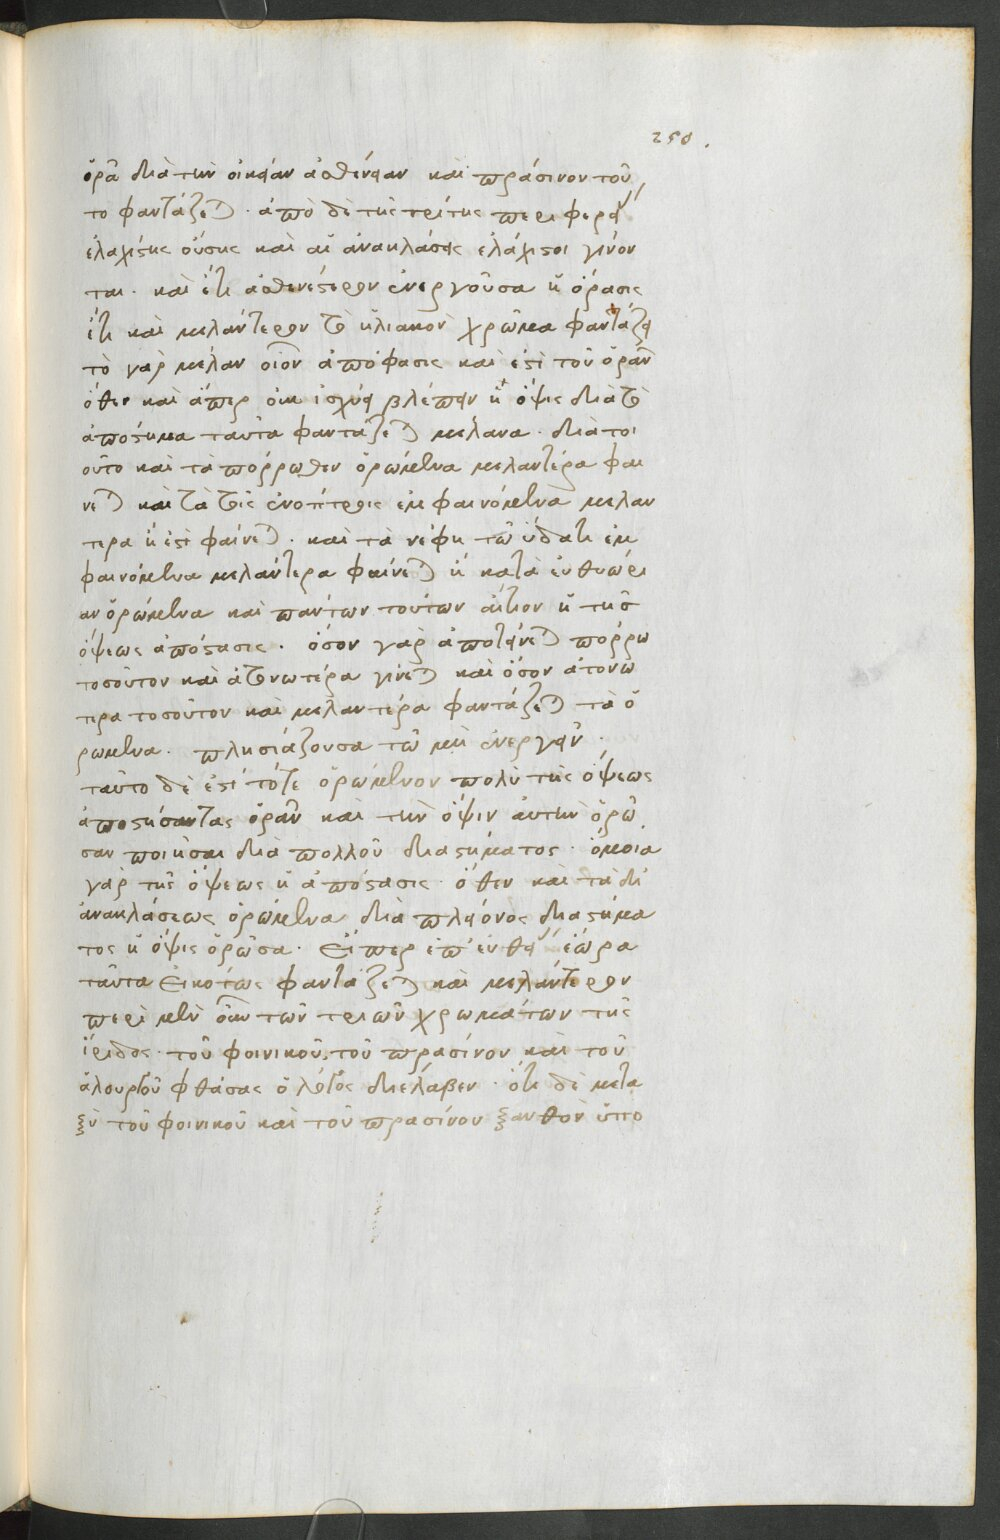 250.
ὁρᾶ διὰ τὴν οἰκείαν ἀσθένειαν καὶ πράσινον τοῦ
το φαντάζεται. ἀπὸ δὲ τῆς τρίτης περιφερεί
ἐλαχίστης οὔσης καὶ αἱ ἀνακλάσεις ἐλάχισται γίνον
ται. καὶ ἔτι ἀσθενέστερον ἐνεργοῦσα ἡ ὅρασις
ἔτι καὶ μελάντερον τὸ ἡλιακὸν χρῶμα φαντάζει
τὸ γὰρ μέλαν οἷον ἀπόφασις καὶ ἐστὶ τοῦ ὁρᾶν
ὅθεν καὶ ἅπερ οὐκ ἰσχύει βλέπειν ἡ ὄψις διὰ τὸ
ἀπόστημα ταῦτα φαντάζεται μέλανα. διὰ τοι
οῦτο καὶ τὰ πόρρωθεν ὁρώμενα μελαντέρα φαι
νεται καὶ τὰ τοῖς ἐνόπτροις ἐμφαινόμενα μελαν
τερα ἢ ἐστὶ φαίνεται. καὶ τὰ νέφη τῶ ὕδατι ἐμ
φαινόμενα μελάντερα φαίνεται ἢ κατὰ εὐθυωρί
αν ὁρώμενα καὶ πάντων τούτων αἴτιον ἡ τῆς
ὄψεως ἀπόστασις. ὅσον γὰρ ἀποτείνεται πόρρω
τοσοῦτον καὶ ἀτονωτέρα γίνεται καὶ ὅσον ἀτονω
τερα τοσοῦτον καὶ μελαντέρα φαντάζεται τὰ ὁ
ρώμενα. πλησιάζουσα τῶ μὴ ἐνεργεῖν.
ταυτο δὲ ἐστὶ τότε ὁρώμενον πολὺ τῆς ὄψεως
ἀποστήσαντας ὁρᾶν καὶ τὴν ὄψιν αὐτὴν ὁρῶ
σαν ποιῆσαι διὰ πολλοῦ διαστήματος. ὁμοία
γὰρ τῆς ὄψεως ἡ ἀπόστασις. ὅθεν καὶ τὰ δι'
ἀνακλάσεως ὁρώμενα διὰ πλείονος διαστήμα
τος ἡ ὄψις ὁρῶσα. εἴπερ ἐπ' εὐθεί ἑώρα
ταῦτα εἰκότως φαντάζεται καὶ μελάντερον
περὶ μὲν οὖν τῶν τριῶν χρωμάτων τῆς
ἴριδος. τοῦ φοινικοῦ, τοῦ πρασίνου καὶ τοῦ
ἁλουργοῦ φθάσας ὁ λόγος διέλαβεν. ὅτι δὲ μετα
ξὺ τοῦ φοινικοῦ καὶ τοῦ πρασίνου ξανθὸν ὑπο